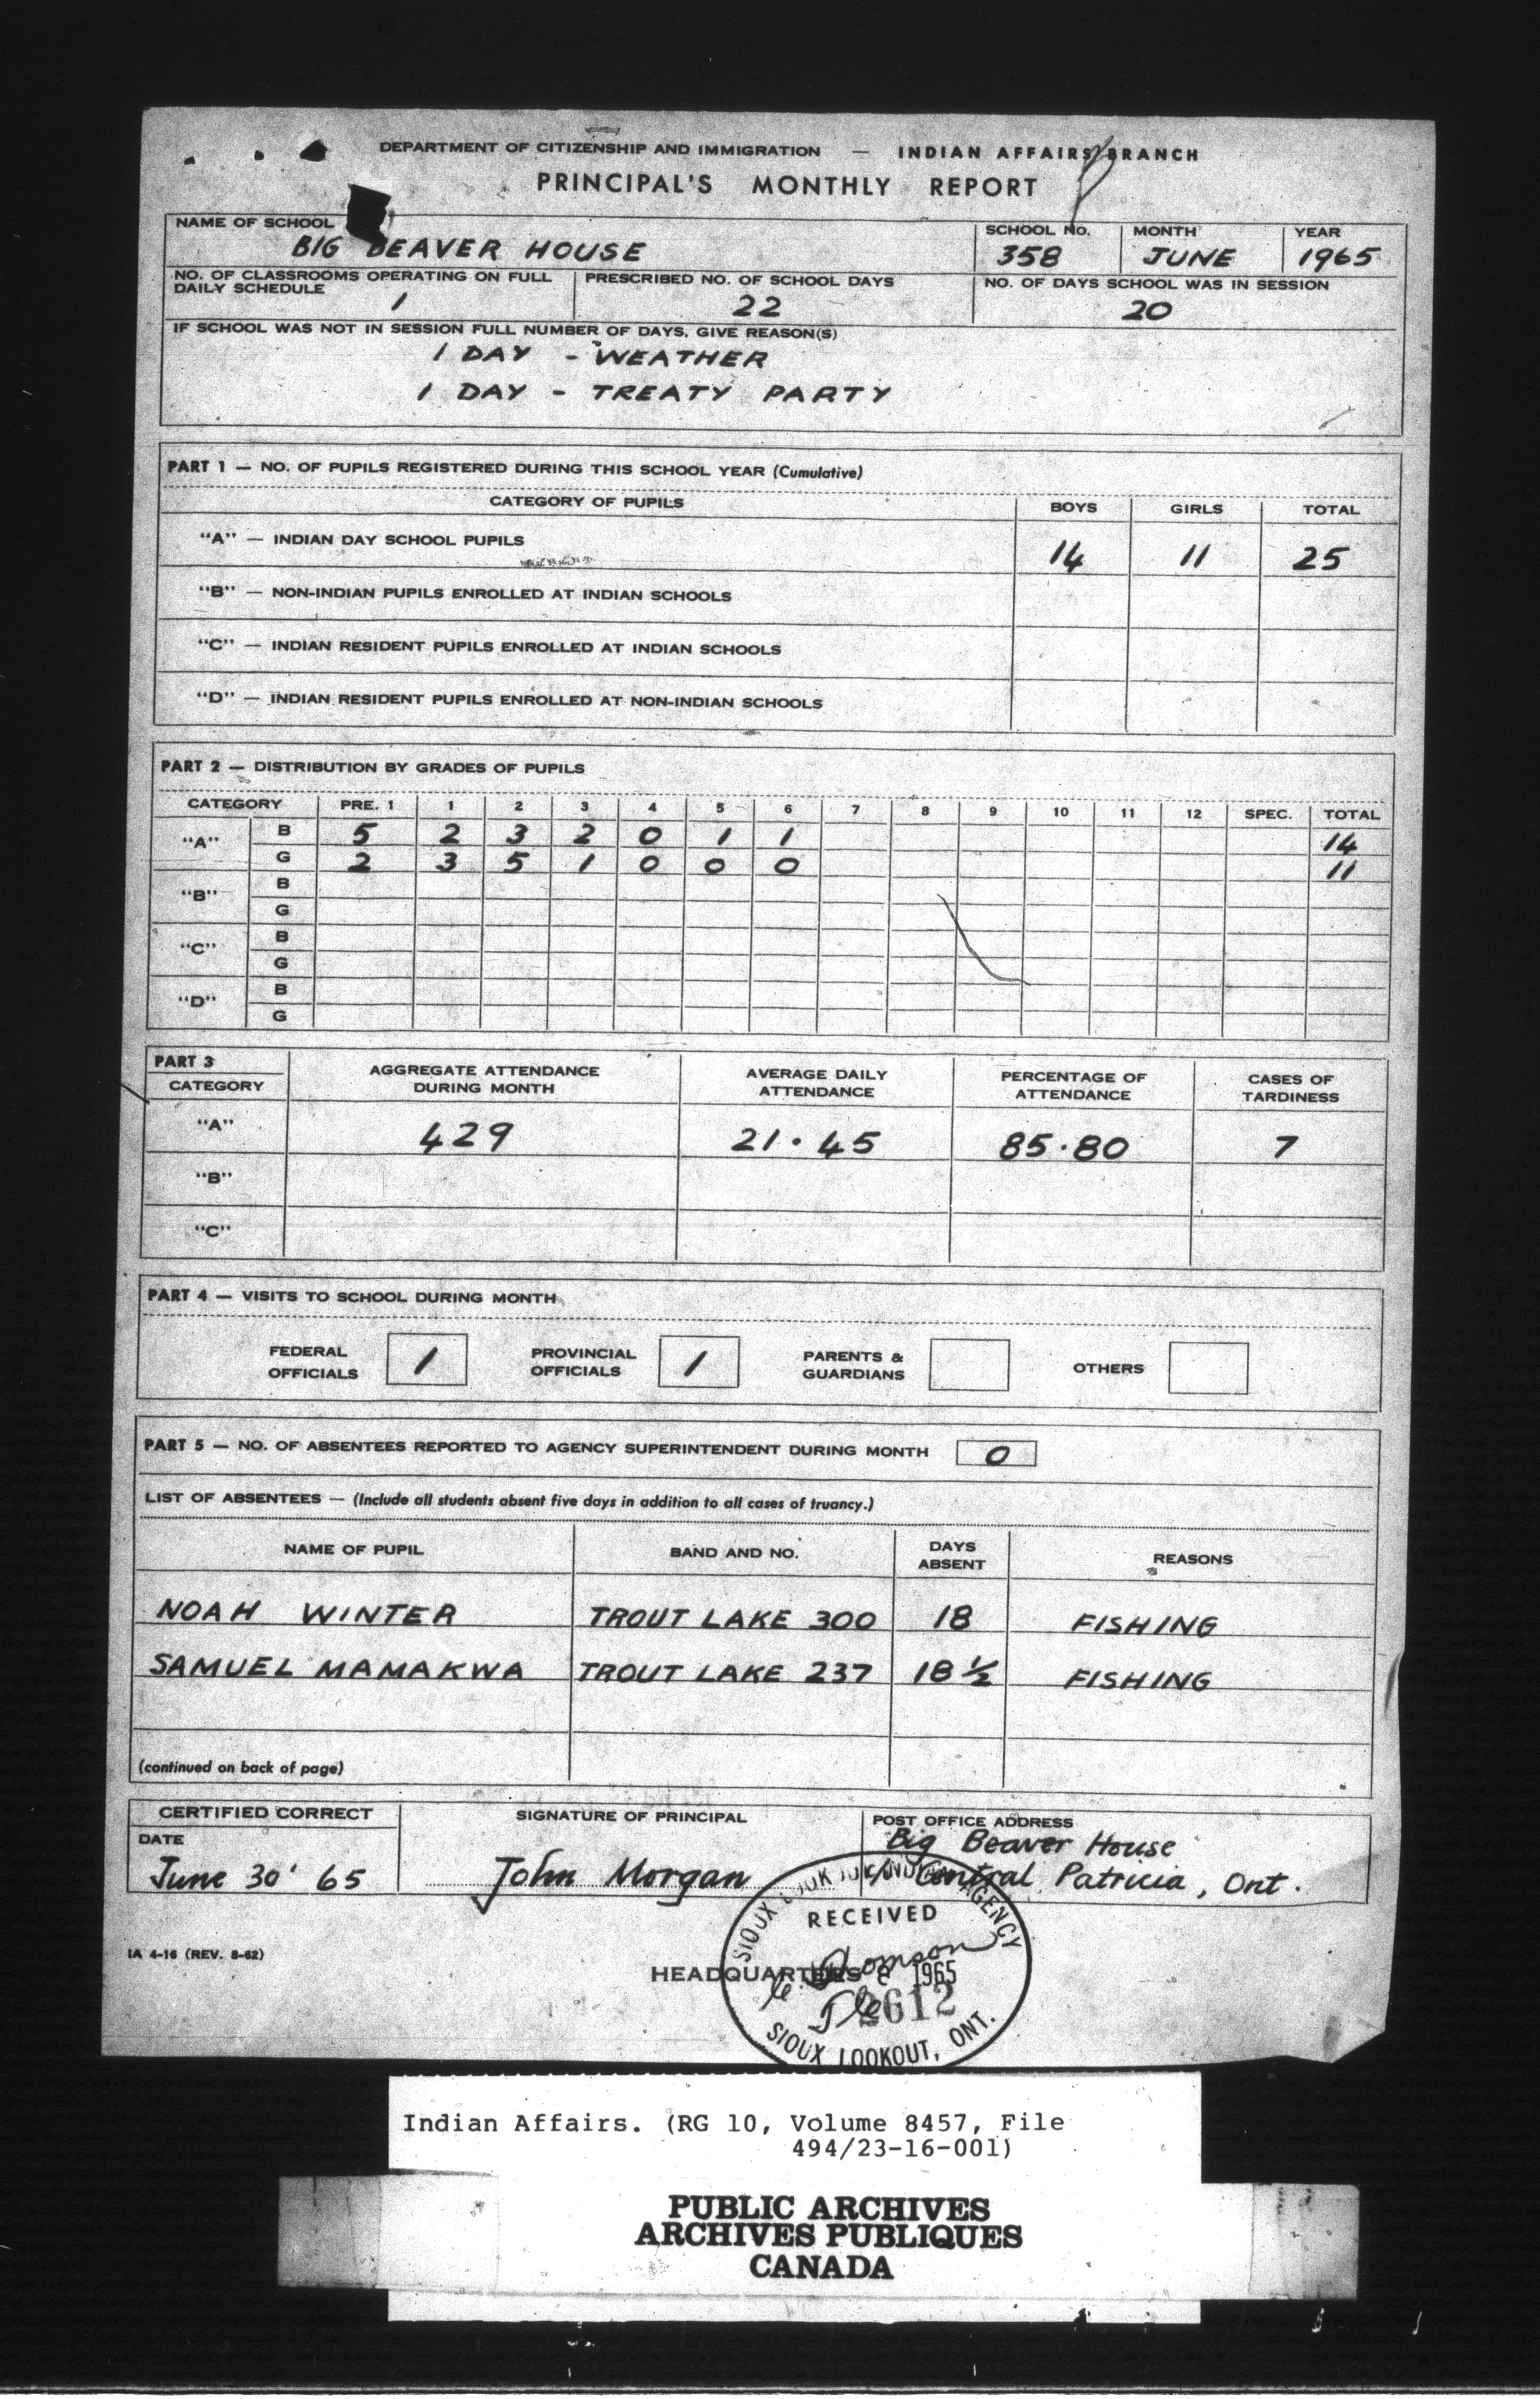 DEPARTMENT OF CITIZENSHIP AND IMMIGRATION — INDIAN AFFAIRS BRANCH
PRINCIPAL'S MONTHLY REPORT
NAME OF SCHOOL SCHOOL No. MONTH YEAR
BIG BEAVER HOUSE 358 JUNE 1965
NO. OF CLASSROOMS OPERATING ON FULL PRESCRIBED NO. OF SCHOOL DAYS NO. OF DAYS SCHOOL WAS IN SESSION
DAILY SCHEDULE
1 22 20
IF SCHOOL WAS NOT IN SESSION FULL NUMBER OF DAYS, GIVE REASON(S)
1 DAY - WEATHER
1 DAY - TREATY PARTY
PART 1 — NO. OF PUPILS REGISTERED DURING THIS SCHOOL YEAR (Cumulative)
CATEGORY OF PUPILS BOYS GIRLS TOTAL
"A" — INDIAN DAY SCHOOL PUPILS 14 11 25
"B" — NON-INDIAN PUPILS ENROLLED AT INDIAN SCHOOLS
"C" — INDIAN RESIDENT PUPILS ENROLLED AT INDIAN SCHOOLS
"D" — INDIAN RESIDENT PUPILS ENROLLED AT NON-INDIAN SCHOOLS
PART 2 — DISTRIBUTION BY GRADES OF PUPILS
CATEGORY PRE. 1 1 2 3 4 5 6 7 8 9 10 11 12 SPEC. TOTAL
"A" B 5 2 3 2 0 1 1 14
G 2 3 5 1 0 0 0 11
"B" B
G
"C" B
G
"D" B
G
PART 3
CATEGORY AGGREGATE ATTENDANCE DURING MONTH AVERAGE DAILY ATTENDANCE PERCENTAGE OF ATTENDANCE CASES OF TARDINESS
"A" 429 21.45 85.80 7
"B"
"C"
PART 4 — VISITS TO SCHOOL DURING MONTH
FEDERAL OFFICIALS 1 PROVINCIAL OFFICIALS 1 PARENTS & GUARDIANS OTHERS
PART 5 — NO. OF ABSENTEES REPORTED TO AGENCY SUPERINTENDENT DURING MONTH 0
LIST OF ABSENTEES — (Include all students absent five days in addition to all cases of truancy.)
NAME OF PUPIL BAND AND NO. DAYS ABSENT REASONS
NOAH WINTER TROUT LAKE 300 18 FISHING
SAMUEL MAMAKWA TROUT LAKE 237 18 ½ FISHING
(continued on back of page)
CERTIFIED CORRECT SIGNATURE OF PRINCIPAL POST OFFICE ADDRESS
DATE Big Beaver House
June 30' 65 John Morgan c/o Central Patricia, Ont.
SIOUX LOOKOUT INDIAN AGENCY
RECEIVED
IA 4-16 (REV. 8-62)
HEADQUARTERS 1965
2612
SIOUX LOOKOUT, ONT.
Indian Affairs. (RG 10, Volume 8457, File
494/23-16-001)
PUBLIC ARCHIVES
ARCHIVES PUBLIQUES
CANADA